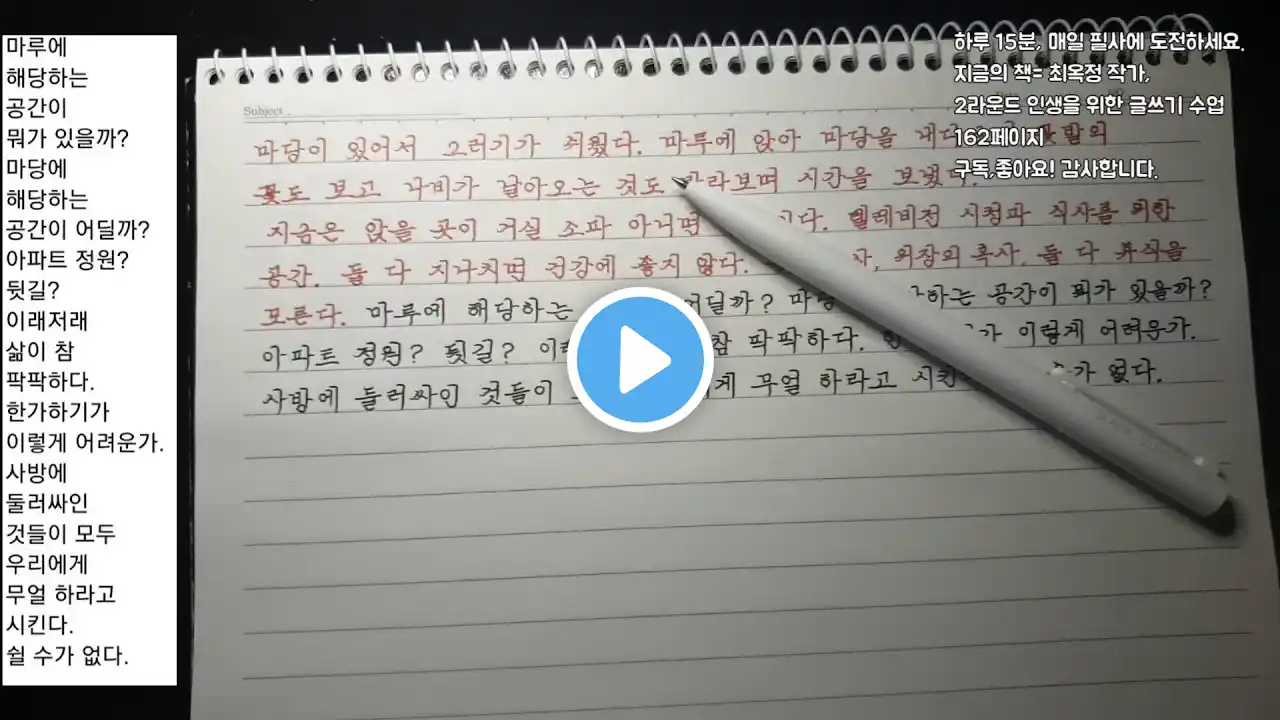 마루에
해당하는
공간이
뭐가 있을까?
마당에
해당하는
공간이 어딜까?
아파트 정원?
뒷길?
이래저래
삶이 참
팍팍하다.
한가하기가
이렇게 어려운가.
사방에
둘러싸인
것들이 모두
우리에게
무얼 하라고
시킨다.
쉴 수가 없다.
하루 15분, 매일 필사에 도전하세요.
지금의 책= 최옥정 작가,
2라운드 인생을 위한 글쓰기 수업
162페이지
구독,좋아요! 감사합니다.
Subject
마당이 있어서 그러기가 쉬웠다. 마루에 앉아 마당을 내다 꽃밭의
꽃도 보고 나비가 날아오는 것도 바라보며 시간을 보냈다.
지금은 앉을 곳이 거실 소파 아니면 다. 텔레비전 시청과 식사를 위한
공간. 둘 다 지나치면 건강에 좋지 않다. 사, 위장의 혹사. 둘 다 휴식을
모른다. 마루에 해당하는 어딜까? 마당 하는 공간이 뭐가 있을까?
아파트 정원? 뒷길? 참 팍팍하다. 가 이렇게 어려운가.
사방에 둘러싸인 것들이 게 무얼 하라고 시킨 수가 없다.